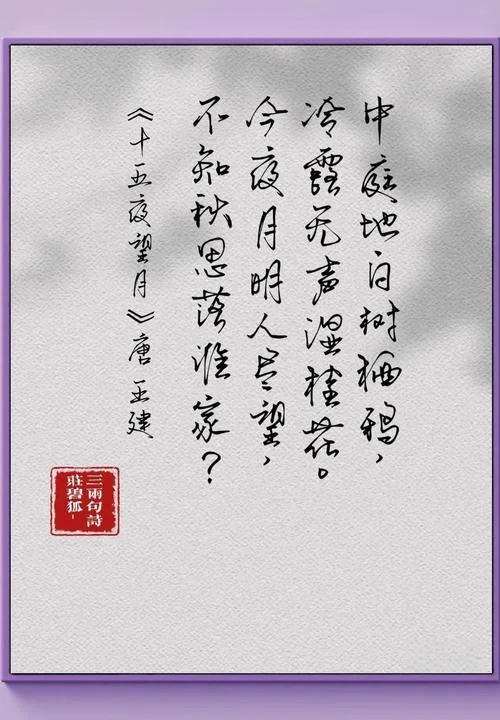 中庭地白树栖鸦，
冷露无声湿桂花。
今夜月明人尽望，
不知秋思落谁家？
《十五夜望月》唐 王建
三两句詩
莊碧狐